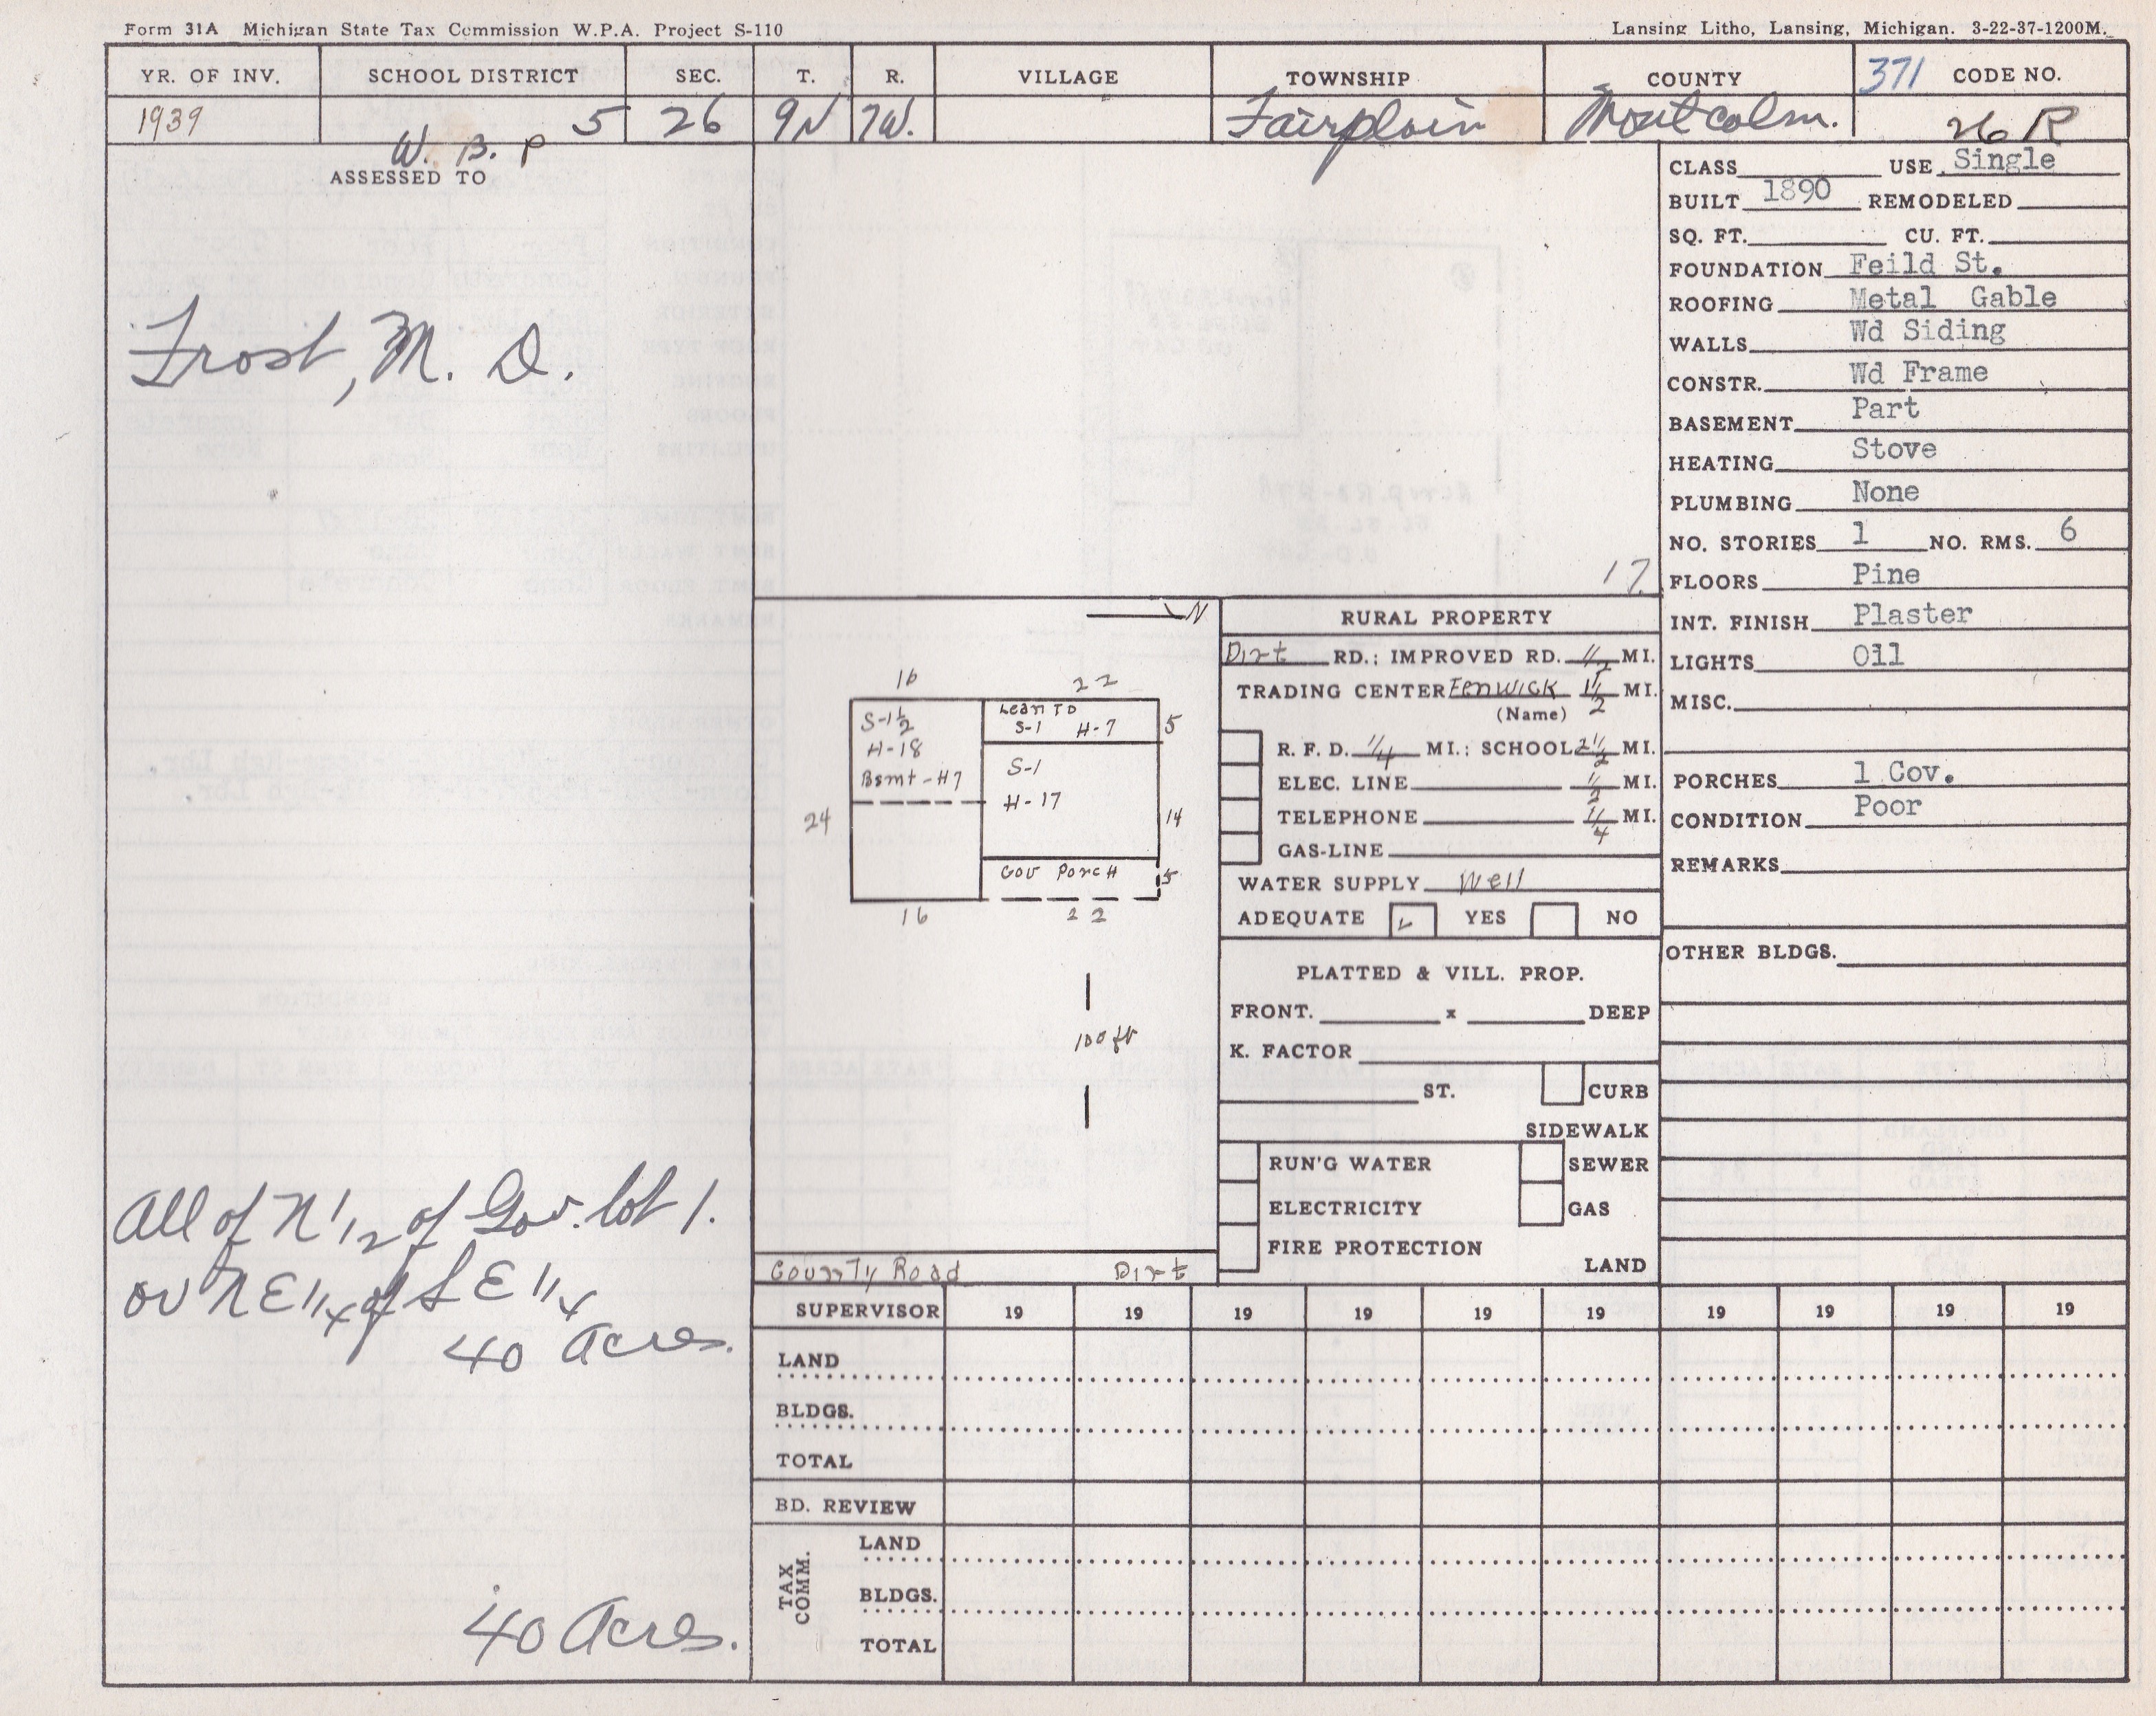 Form 31A Michigan State Tax Commission W.P.A. Project S-110
Lansing Litho, Lansing, Michigan. 3-22-37-1200M.
YR. OF INV. SCHOOL DISTRICT SEC. T. R. VILLAGE TOWNSHIP COUNTY 371 CODE NO.
1939 5 26 9N 7W. Fairplain Montcalm. 26 R
W. B. P
ASSESSED TO
Frost, M. D.
All of N 1/2 of Gov. lot 1.
or N E 1/4 of S E 1/4
40 Acres.
40 Acres.
17.
N
16 22
S-1 1/2
H-18
Bsmt-H7
Lean To
S-1 H-7
5
S-1
H-17
24
14
Cov Porch
5
16 22
100 ft
County Road Dirt
RURAL PROPERTY
Dirt RD.; IMPROVED RD. 1/2 MI.
TRADING CENTER Fenwick 1 1/2 MI.
(Name)
R. F. D. 1/4 MI.; SCHOOL 2 1/2 MI.
ELEC. LINE 1/2 MI.
TELEPHONE 1/4 MI.
GAS-LINE
WATER SUPPLY Well
ADEQUATE YES NO
PLATTED & VILL. PROP.
FRONT. x DEEP
K. FACTOR
ST. CURB
SIDEWALK
RUN'G WATER SEWER
ELECTRICITY GAS
FIRE PROTECTION
LAND
CLASS USE Single
BUILT 1890 REMODELED
SQ. FT. CU. FT.
FOUNDATION Feild St.
ROOFING Metal Gable
WALLS Wd Siding
CONSTR. Wd Frame
BASEMENT Part
HEATING Stove
PLUMBING None
NO. STORIES 1 NO. RMS. 6
FLOORS Pine
INT. FINISH Plaster
LIGHTS Oil
MISC.
PORCHES 1 Cov.
CONDITION Poor
REMARKS
OTHER BLDGS.
SUPERVISOR 19 19 19 19 19 19 19 19 19 19
LAND
BLDGS.
TOTAL
BD. REVIEW
TAX COMM.
LAND
BLDGS.
TOTAL